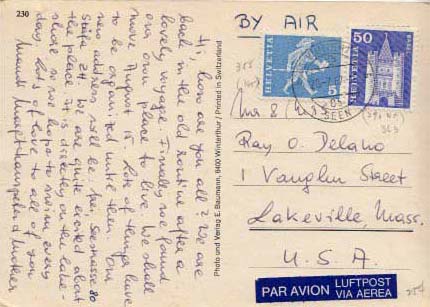 230
Hi, how are you all? We are
back in the old routine after a
lovely voyage. Finally we found
our own place to live. We shall
move August 15. Lots of things have
to be organized until then. Our
new address will be: Seestrasse 80
We are quite excited about
the place. It is directly on the lake-
shore so we hope to swim every
day. Lots of love to all of you
Photo und Verlag E. Baumann, 8400 Winterthur / Printed in Switzerland
BY AIR
HELVETIA 5
HELVETIA 50
SEEN
Ray O. Delano
1 Vaughn Street
Lakeville, Mass.
U.S.A.
PAR AVION
LUFTPOST
VIA AEREA